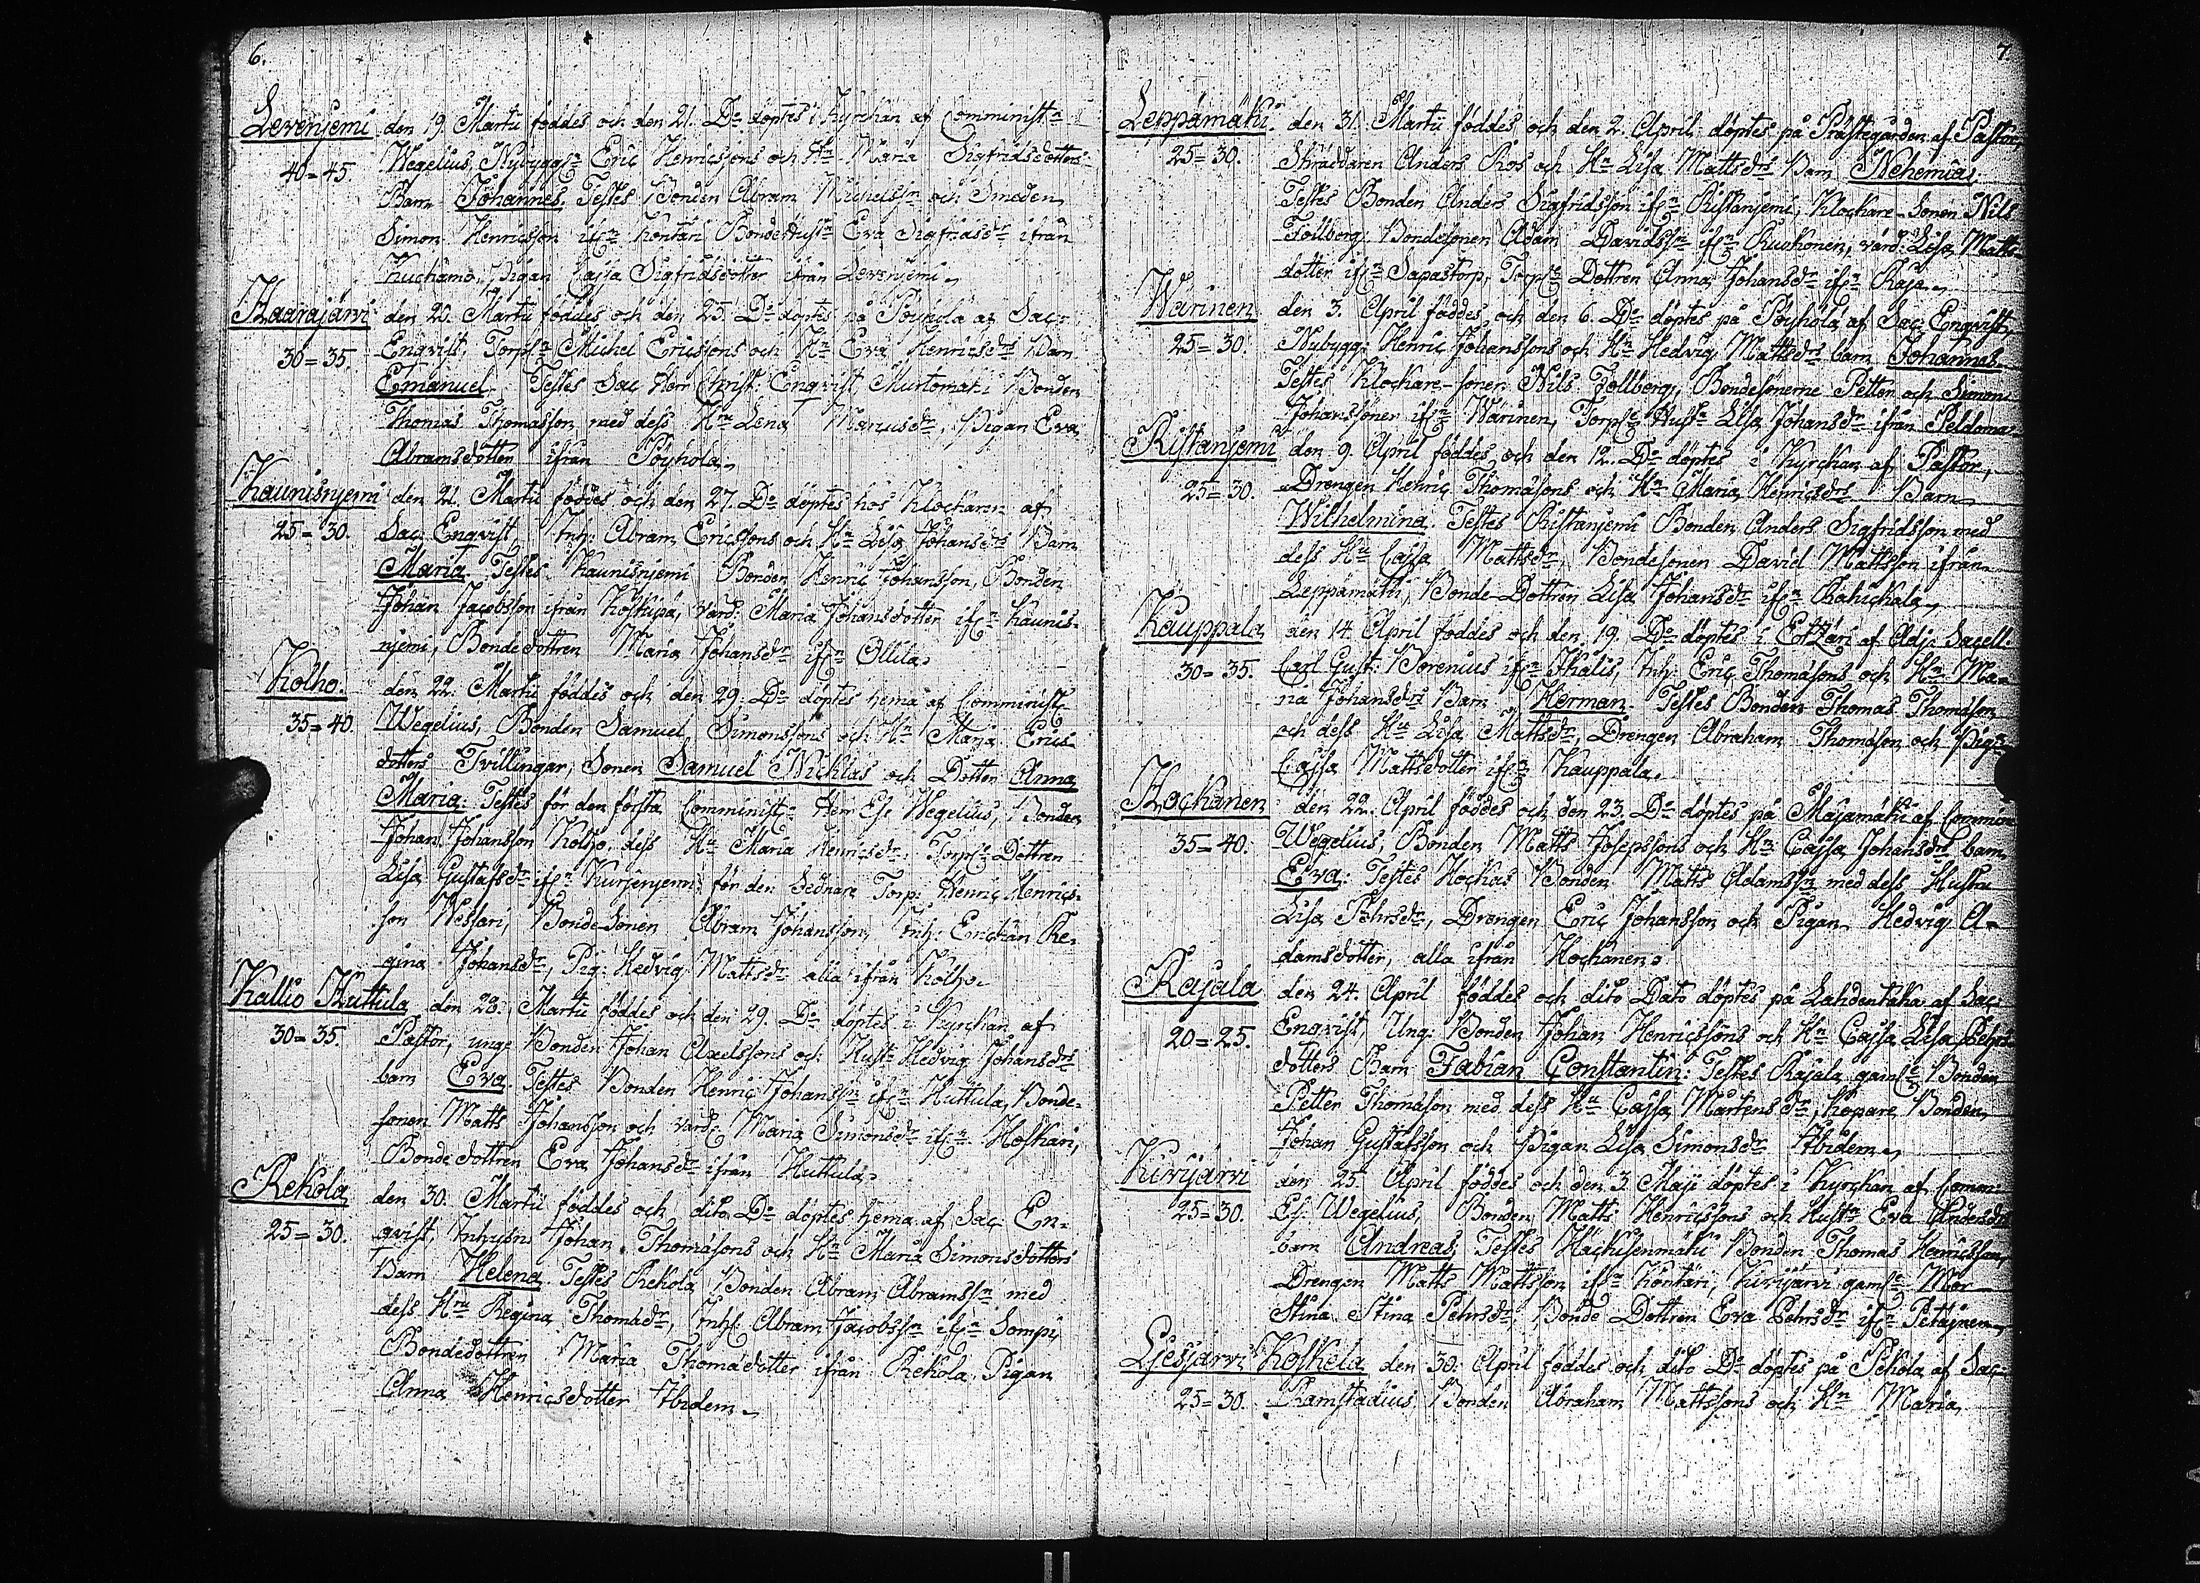 6.
Levenjemi den 19. Martii föddes och den 21. Do döptes i Kyrckan af Comministn
40=45. Wegelius, Nybyggn Eric Henricssons och Hn Maria Sigfridsdotters
Barn Johannes. Testes Bonden Abram Michelssn och Smeden
Simon Henricsson ifn Kontari Bondehustn Eva Sigfridsdr ifrån
Kuchämä, Pigan Cajsa Sigfridsdotter ifrån Levenjemi.
Haarajärvi den 20. Martii föddes och den 25 Do döptes på Pöyhölä af Sac:
30=35. Enqvist, Torpn Michel Ericssons och Hn Eva Henricsdrs Barn
Emanuel. Testes Sac Herr Christ: Enqvist, Murtomäki Bonden
Thomas Thomasson med dess Hru Lena, Pigan Eva
Abramsdotter ifrån Pöyhölä.
Kaunisnjemi den 21. Martii föddes och den 27. Do döptes hos Klockaren af
25=30. Sac: Enqvist, Inh: Abram Ericssons och Hn Lisa Johansdrs Barn
Maria. Testes Kaunisnjemi Bonden Henric Johansson, Bonden
Johan Jacobsson ifrån Koskipä, värd: Maria Johansdotter ifn Kaunis-
njemi, Bondedottren Maria Johansdr ifn Ollila.
Kolho. den 22. Martii föddes och den 29. Do döptes hema af Comminist
35=40. Wegelius, Bonden Samuel Simonssons och Hn Maja Erics-
dotters Tvillingar, Sonen Samuel Nicklas och Dotter Anna
Maria: Testes för den första Comminist: Herr Es: Wegelius, Bonden
Johan Johansson Kolho, dess Hn Maria Henricsdr, Torp: Dottren
Lisa Gustafsdr ifn Kurjenjemi, för den Sednare Torp: Henric Henrics-
son Wessari, Bonde-Sonen Abram Johansson, Inh: Enckan Re-
gina Johansdr, Pig: Hedvig Mattsdr alla ifrån Kolho.
Kallio Huttula den 28. Martii föddes och den 29. Do döptes i Kyrckan af
30=35. Pastor, unge Bonden Johan Axelssons och Hust: Hedvig Johansdrs
barn Eva. Testes Bonden Henric Johanssn ifn Huttula, Bonde-
sonen Matts Johansson och värd: Maria Simonsdr ifn Hoskari,
Bondedottren Eva Johansdr ifrån Huttula.
Rekola den 30. Martii föddes och dito Do döptes hema af Sac: En-
25=30. qvist, Inhysn Johan Thomasons och Hn Maria Simonsdotters
Barn Helena. Testes Rekola Bonden Abram Abramssn med
dess Hru Regina Thomädr, Inhs: Abram Jacobssn ifn Sompi
Bondedottren Maria Thomädotter ifrån Rekola, Pigan
Anna Henricsdotter Ibidem.
7.
Leppämäki den 31. Martii föddes och den 2. April döptes på Prästegården af Pastor,
25=30. Skräddaren Anders Ros och Hn Lisa Mattsdrs Barn Nehemia.
Testes Bonden Anders Sigfridsson ifn Ristanjemi, Klockare-Sonen Nils
Follberg, Bondesonen Adam Davidssn ifn Ruokonen, värd: Lisa Matts-
dotter ifn Sapastorp, Torp: Dottren Anna Johansdr ifn Raja.
Wärinen den 3. April föddes och den 6. Do döptes på Pöyhölä af Sac: Enqvist,
25=30. Nybygg: Henric Johanssons och Hn Hedvig Mattsdrs barn Johannes.
Testes Klockare-sonen Nils Follberg, Bondesönerne Petter och Simon
Johanssöner ifn Wärinen, Torp: Hustn Lisa Johansdr ifrån Peldoma-
Ristanjemi den 9. April föddes och den 12. Do döptes i Kyrckan af Pastor,
25=30. Drengen Henric Thomäsons och Hn Maria Henricsdrs Barn
Wilhelmina. Testes Ristanjemi Bonden Anders Sigfridsson med
dess Hn Cajsa Mattsdr, Bondesonen David Mattsson ifrån
Leppämäki, Bonde-Dottren Lisa Johansdr ifn Rahickala.
Kauppala den 14. April föddes och den 19. Do döptes i Etzäri af Adj: Sacell:
30=35. Carl Gust: Borenius ifn Ikalis, Inh: Eric Thomäsons och Hn Ma-
ria Johansdrs Barn Herman. Testes Bonden Thomas Thomäson
och dess Hn Lisa Mattsdr, Drengen Abraham Thomäson och Pig:
Cajsa Mattsdotter ifn Kauppala.
Hockanen den 22. April föddes och den 23. Do döptes på Majamäki af Commin:
35=40. Wegelius, Bonden Matts Josepssons och Hn Cajsa Johansdrs barn
Eva: Testes Hockas Bonden Matts Adamssn med dess Hustru
Lisa Pehrsdr, Drengen Eric Johansson och Pigan Hedvig A-
damsdotter, alla ifrån Hockanen.
Rajala den 24. April föddes och dito Dato döptes på Lahdentaka af Sac:
20=25. Enqvist, Ung: Bonden Johan Henricssons och Hn Cajsa Lisa Pehrs-
dotters Barn Fabian Constantin: Testes Rajala gaml: Bonden
Petter Thomäson med dess Hn Cajsa Mårtensdr, Kopare Bonden
Johan Gustafsson och Pigan Lisa Simonsdr Ibidem.
Kivijärvi den 25. April föddes och den 3 Maji döptes i Kyrckan af Comm:
25=30. Es: Wegelius, Bonden Matts Henricssons och Hustn Eva Andersdrs
barn Andreas, Testes Häckisenmäki Bonden Thomas Henricsson,
Drengen Matts Mattsson ifn Kontari, Kivijärvi gaml: Mor
Stina Stina Pehrsdr, Bonde Dottren Eva Pehrsdr ifn Petäjnen.
Ljesjärvi Koskela den 30. April föddes och dito Do döptes på Pekola af Sac:
25=30. Ramstadius, Bonden Abraham Mattssons och Hn Maria